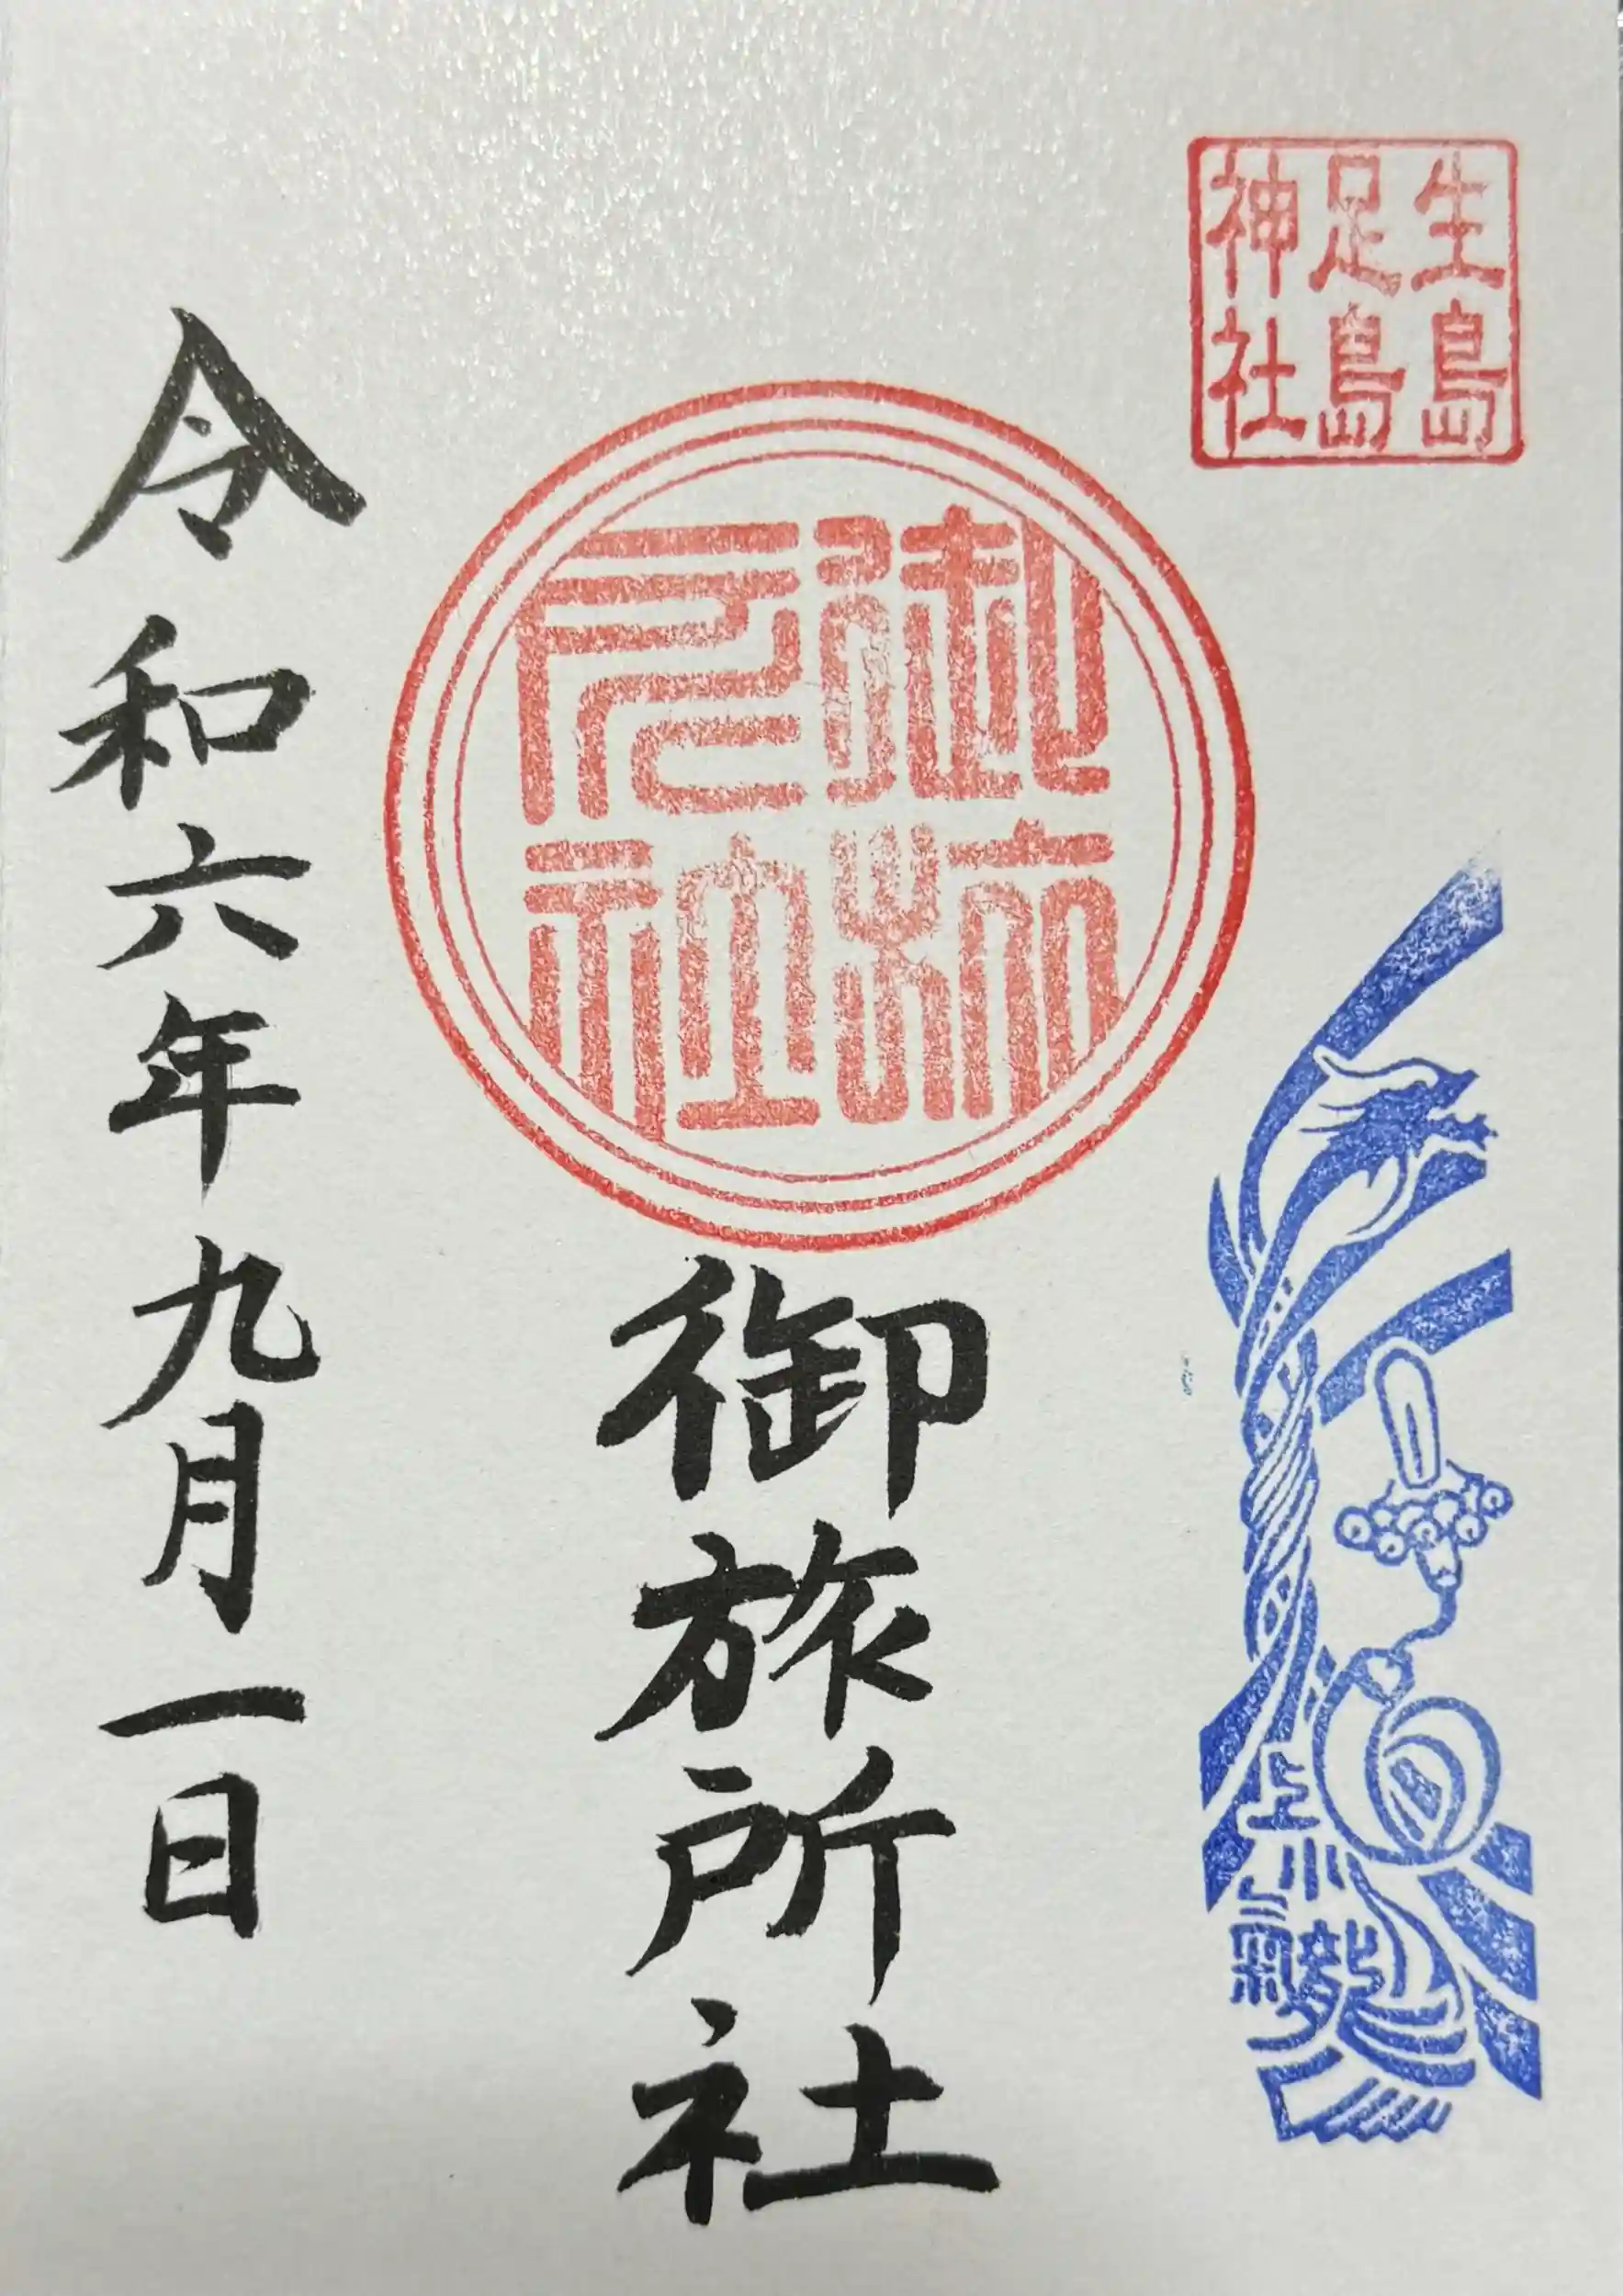 生島
足島
神社
御旅
所社
御旅所社
上小
龍
令和六年九月一日